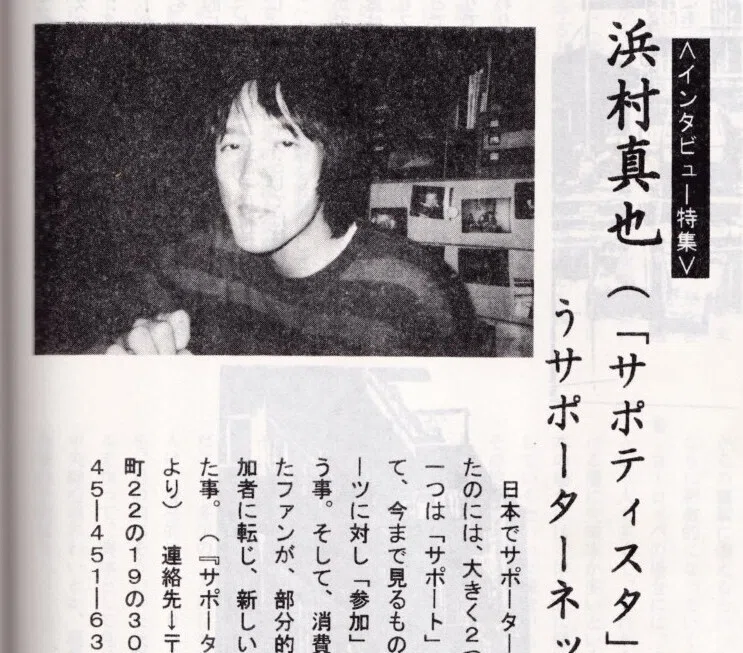 <インタビュー特集>
浜村真也(「サポティスタ」
うサポーターネッ
日本でサポーター
たのには、大きく2つ
一つは「サポート」
て、今まで見るもの
ーツに対し「参加」
う事。そして、消費
たファンが、部分的
加者に転じ、新しい
た事。(『サポータ
より) 連絡先→〒
町22の19の30
45ー451ー63